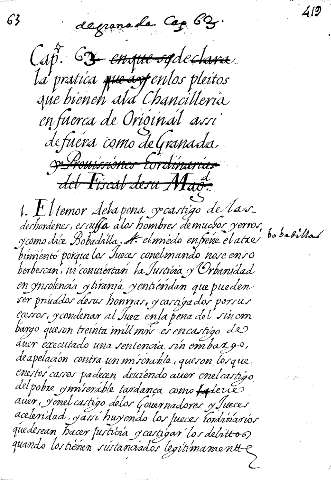 63
de granada Cap. 63.
419
Cap. 63 en que se declara
la pratica que ay en los pleitos
que bienen a la Chancilleria
en fuerca de Original assi
de fuera como de Granada
y Prouissiones hordinarias
del Fiscal de su Magd.
1. El temor de la pena y castigo de las
deshordenes, escussa a los hombres de muchos yerros,
y como dize Bobadilla, el miedo enfrena el atre
Bobadilla
bimiento porque los Jueces con el mando no se enso
berbescan, ni conuiertan la Justicia y Urbanidad
en ynsolencia y tirania, y entiendan que pueden
ser priuados de sus honrras, y castigados por sus
excessos, y condenar al Juez en la pena del sin em
bargo que son treinta mill mrs en castigo de
auer executado una sentencia sin embargo,
de apelacion contra un miserable, que son los que
en estos casos padecen deuiendo auer en el castigo
del pobre y miserable tardança como deuie
auer, y en el castigo de los Gouernadores y Jueces
aceleridad, y assi huyendo los jueces hordinarios
que desean hacer justicia y castigar los delittos
quando los tienen sustanciados legitimamente